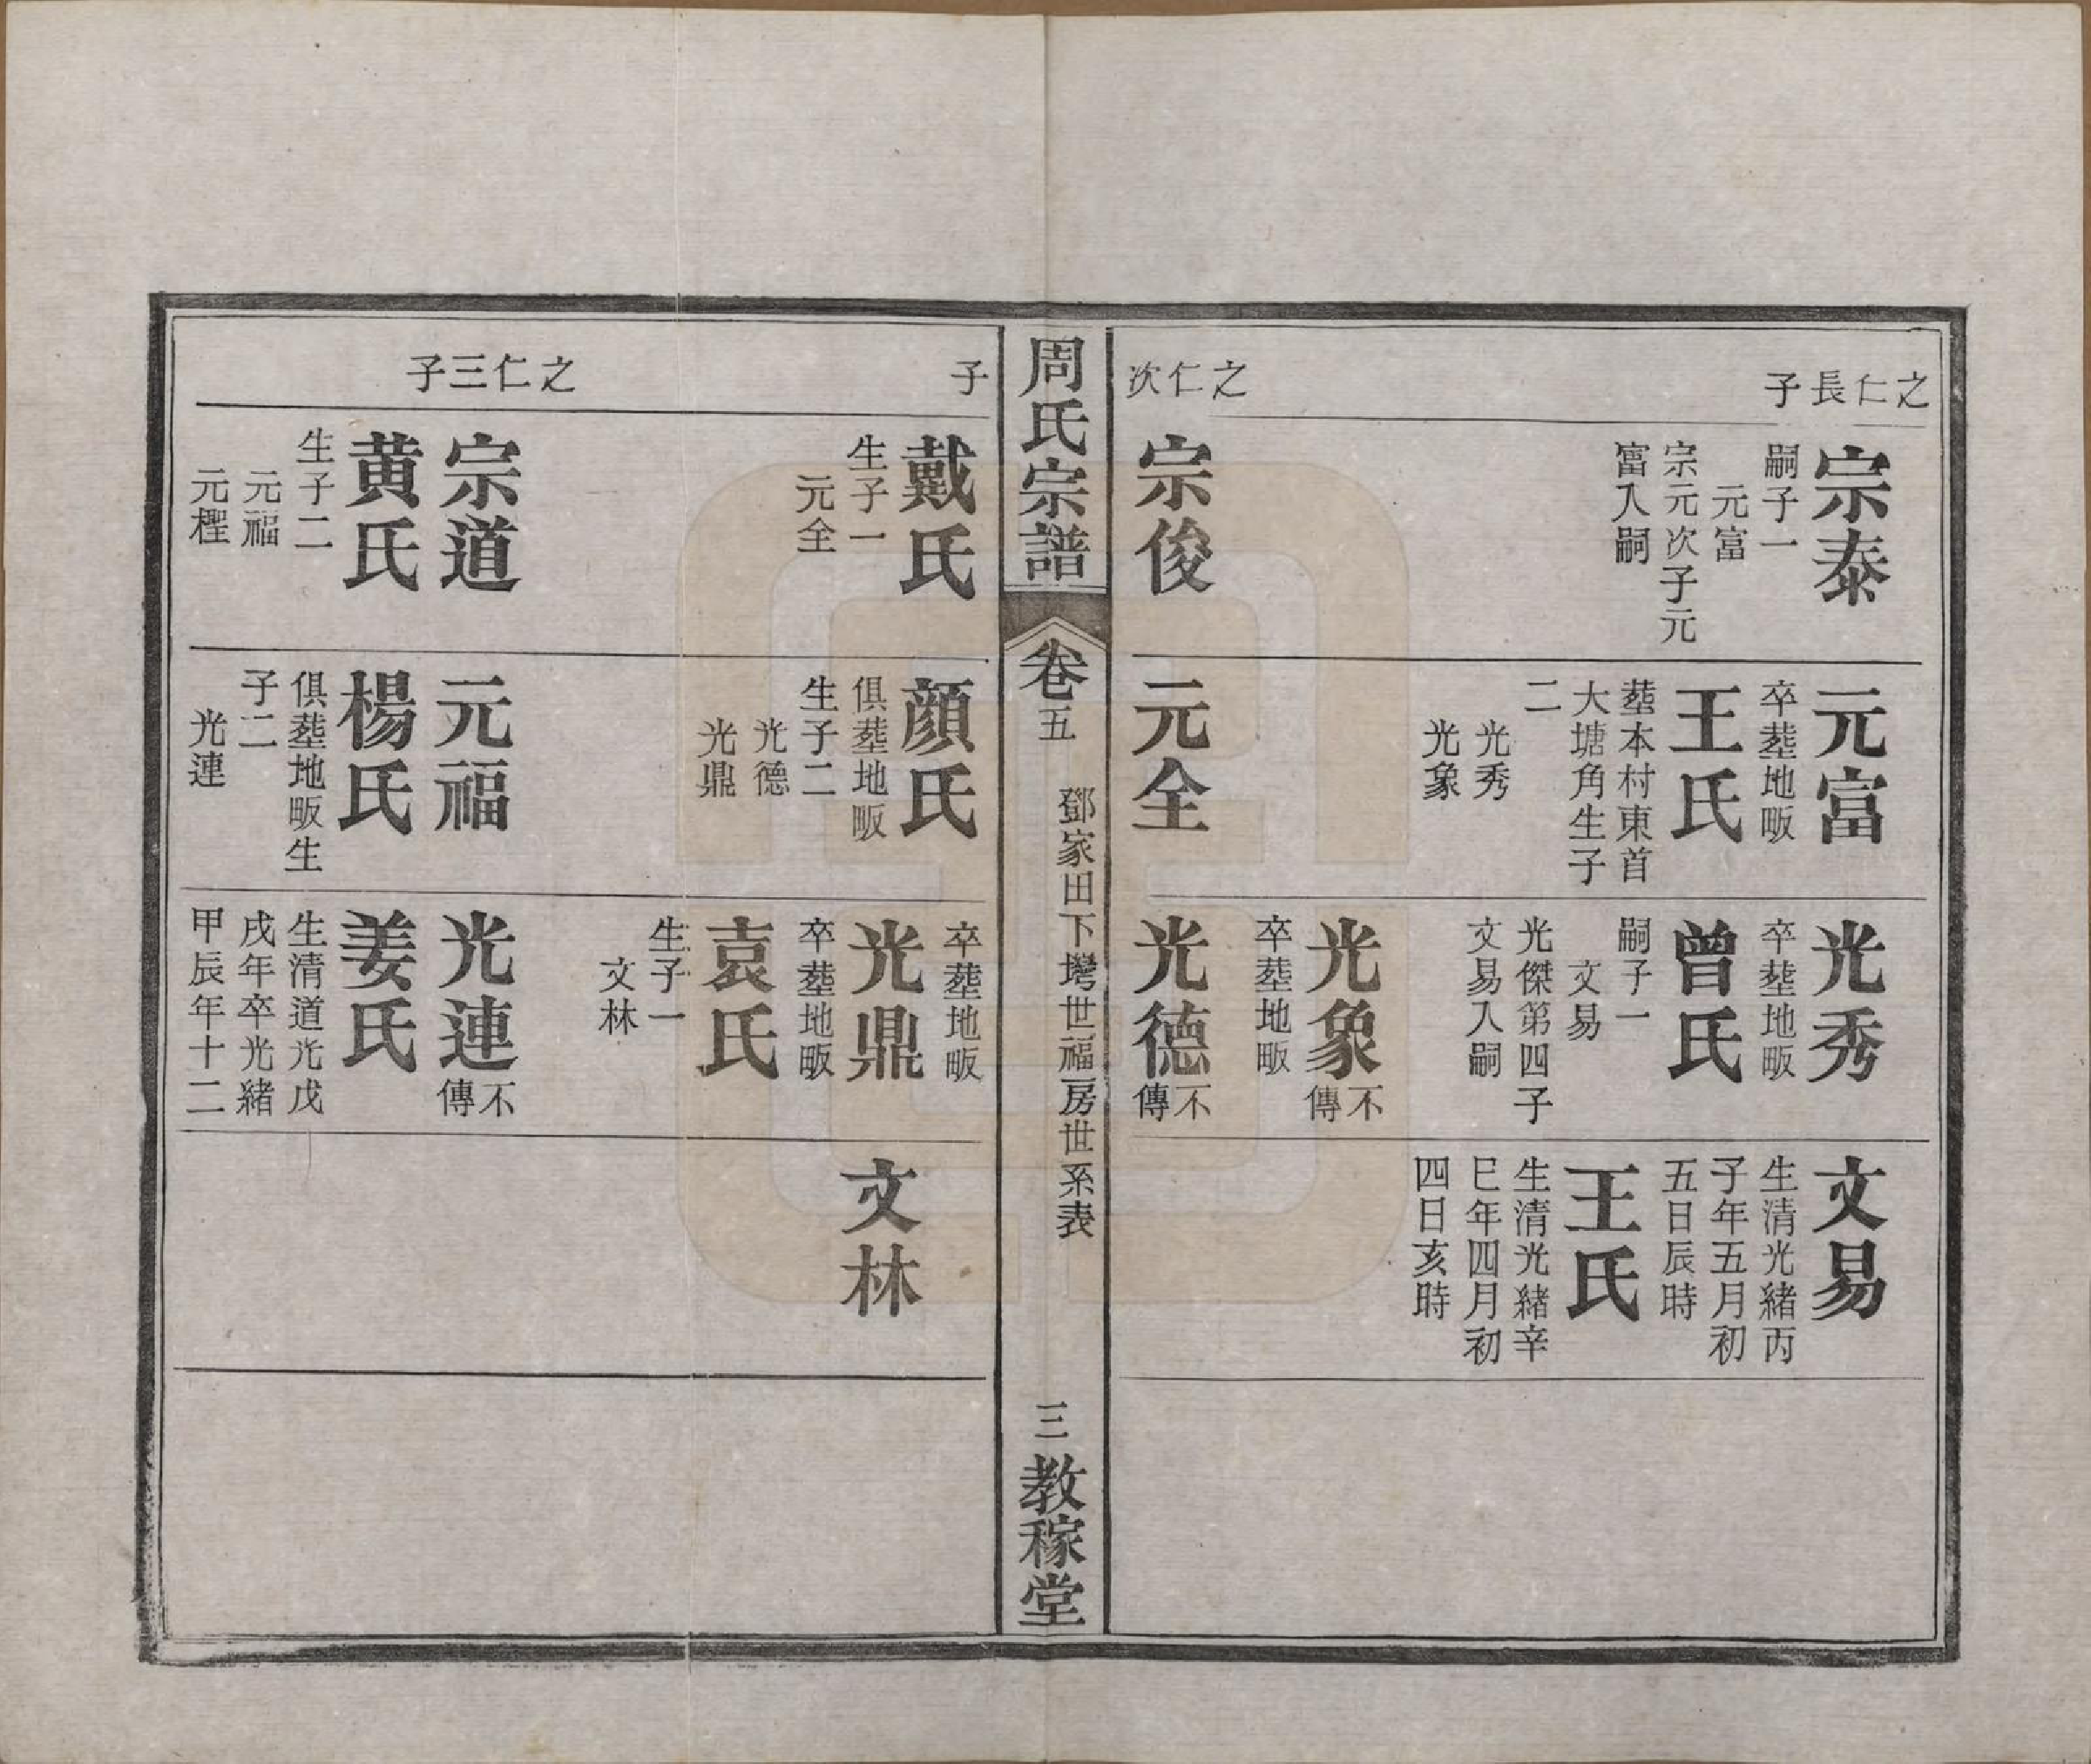 之仁長子
宗泰
嗣子一
元富
宗元次子元
富入嗣
元富
卒塟地畈
王氏
塟本村東首
大塘角生子
二
光秀
光象
光秀
卒塟地畈
曾氏
嗣子一
文易
光傑第四子
文易入嗣
光象不傳
卒塟地畈
文易
生清光緒丙
子年五月初
五日辰時
王氏
生清光緒辛
巳年四月初
四日亥時
之仁次
宗俊
元全
光德不傳
周氏宗譜
卷五
鄧家田下塆世福房世系表
三
教稼堂
子
戴氏
生子一
元全
顔氏
俱塟地畈
生子二
光德
光鼎
卒塟地畈
光鼎
卒塟地畈
袁氏
生子一
文林
文林
之仁三子
宗道
黄氏
生子二
元福
元樫
元福
楊氏
俱塟地畈生
子二
光連
光連不傳
姜氏
生清道光戊
戌年卒光緒
甲辰年十二